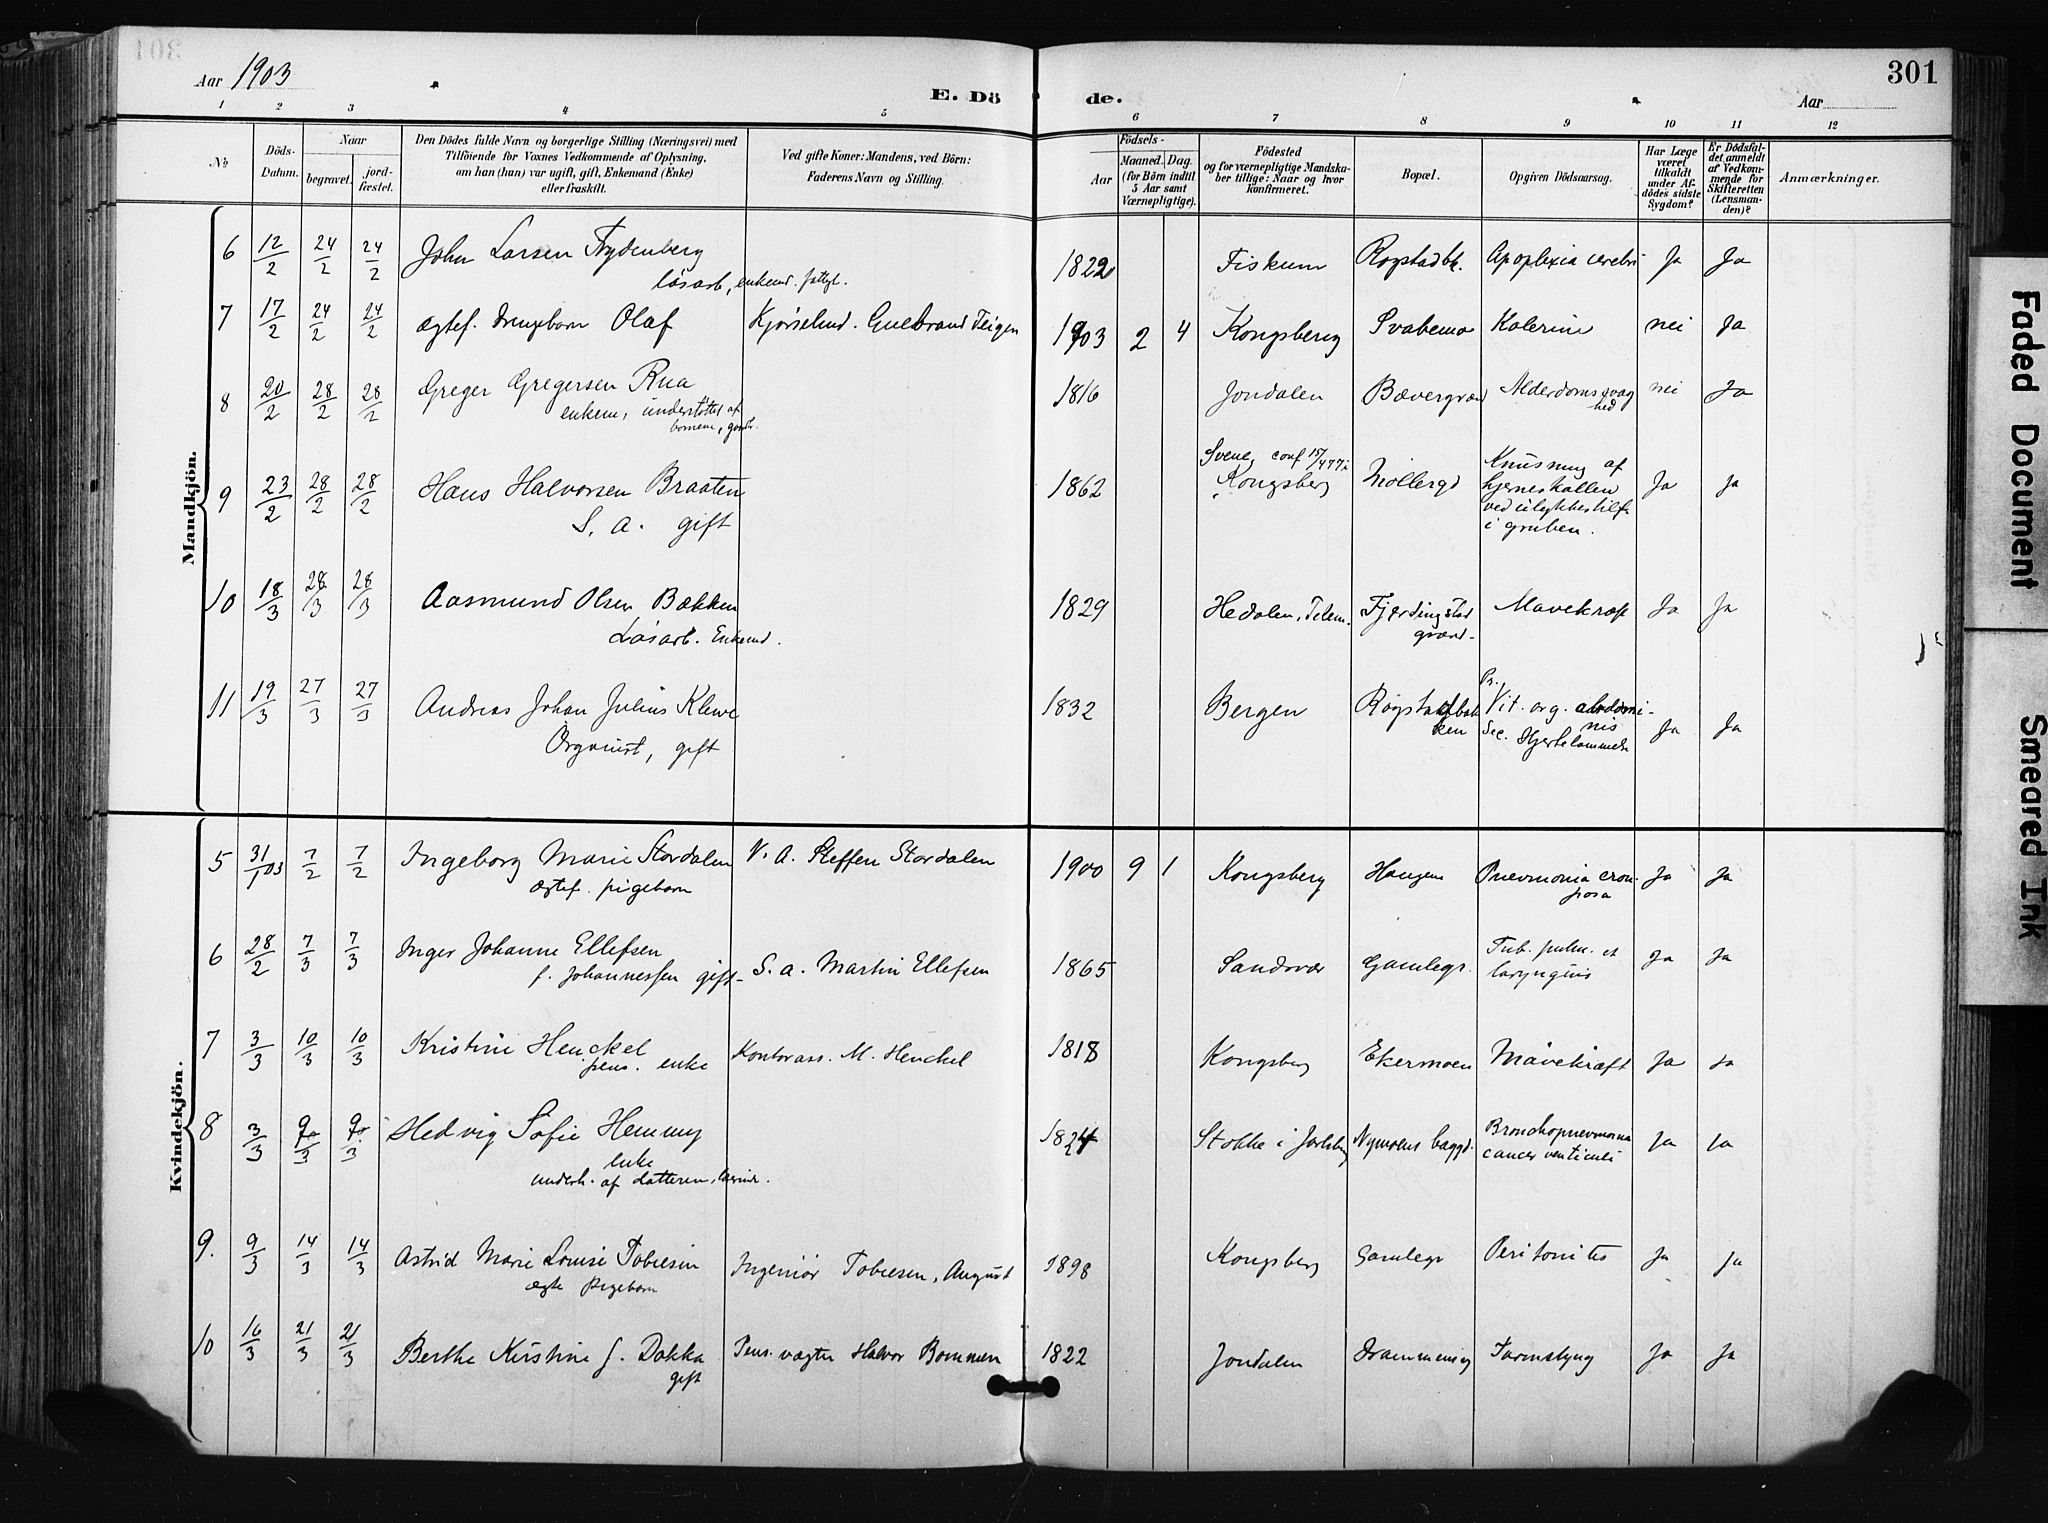 301
Aar 1903
E. Dö de.
Aar
1 2 3 4 5 6 7 8 9 10 11 12
No
Döds-Datum.
Naar
begravet.
jord-fæstet.
Den Dödes fulde Navn og borgerlige Stilling (Næringsvei) med
Tilföiende for Voxnes Vedkommende af Oplysning,
om han (hun) var ugift, gift, Enkemand (Enke)
eller fraskilt.
Ved gifte Koner: Mandens, ved Börn:
Faderens Navn og Stilling.
Födsels-
Aar
Maaned. Dag.
(for Börn indtil
5 Aar samt
Værnepligtige).
Födested
og for værnepligtige Mandska-
ber tillige: Naar og hvor
konfirmeret.
Bopæl.
Opgiven Dödsaarsag.
Har Læge
været
tilkaldt
under Af-
dödes sidste
Sygdom?
Er Dödsfal-
det anmeldt
af Vedkom-
mende for
Skifteretten
(Lensman-
den)?
Anmærkninger.
Mandkjön.
6 12/2 24/2 24/2 John Larsen 1822 Fiskum Rogstadbk. Apoplexia cerebri Ja Ja
løsarb, enkemd.
7 17/2 24/2 24/2 Ægtef. Drengebarn Olaf Gulbrand Teigen 1903 2 4 Kongsberg Svabemo nei Ja
8 20/2 28/2 28/2 Greger Gregersen Rua 1816 Jondalen Alderdomssvag
hed nei Ja
enkem, understøttet af
9 23/2 28/2 28/2 Hans Halvorsen Braaten 1862 Svene, conf
Kongsberg Møllergd Knusning af
hjerneskallen
ved ulykkestilf
i gruben. Ja Ja
S. a. gift
10 18/3 28/3 28/3 Aasmund Olsen Bækken 1829 Hedalen, Telem. Fjerdingstad
Mavekræft Ja Ja
Løsarb. Enkemd.
11 19/3 27/3 27/3 Andreas Johan Julius Klewe 1832 Bergen Rogstadbak
ken Pr.
Vit. org. abdomi-
nis
Sec. Hjertelammelse Ja Ja
Organist, gift
Kvindekjön.
5 31/1 03 7/2 7/2 Ingeborg Marie Stordalen V. A. Steffen Stordalen 1900 9 1 Kongsberg Haugen Pnevmonia crou-
posa Ja Ja
ægtef. pigebarn
6 28/2 7/3 7/3 Inger Johanne Ellefsen S. a. Martin Ellefsen 1865 Sandsvær Gamlegr. Tub. pulm. et
laryngis Ja Ja
f. Johannessen gift
7 3/3 10/3 10/3 Kristine Henckel Kontorass. M. Henckel 1818 Kongsberg Ekermoen Mavekræft Ja Ja
pens. enke
8 3/3 9/3 9/3 Hedvig Sofie Hemmy 1824 Stokke i Jarlsberg Nymoens Bronchopnevmonia
cancer ventriculi Ja Ja
enke
underh. af datteren, lærind.
9. 9/3 14/3 14/3 Astrid Marie Louise Tobiesen Ingeniør Tobiesen, August 1898 Kongsberg Gamlegr Peritonites Ja Ja
ægte Pigebarn
10 16/3 21/3 21/3 Berthe Kirstine f. Dokka Pens. vægter Halvor Bommen 1822 Jondalen Drammensvg Tarmslyng Ja Ja
gift
Faded Document
Smeared Ink